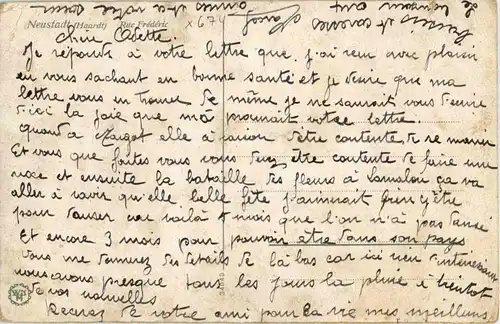 Neustadt (Haardt)
Rue Frédéric
x 674
Chère Odette.
Je réponds à votre lettre que j'ai reçu avec plaisir
en vous sachant en bonne santé et je désire que ma
lettre vous en trouve de même je ne saurait vous d'écrire
d'ici la joie que m'a procurait votre lettre.
quand a Margot elle à raison d'être contente de se marier
Et vous que faites vous vous devez être contente de faire une
noce et ensuite la bataille des fleurs à Lamalou ça va
aller à ravir qu'elle belle fête j'aimerait bien y être
pour danser car voilà 4 mois que l'on n'à pas dansé
Et encore 3 mois pour pouvoir être dans son pays
vous me donnerez des détails de là bas car ici rien d'intéressant
nous avons presque tous les jours la pluie à bientot
de vos nouvelles
Recevez de votre ami pour la vie mes meilleurs